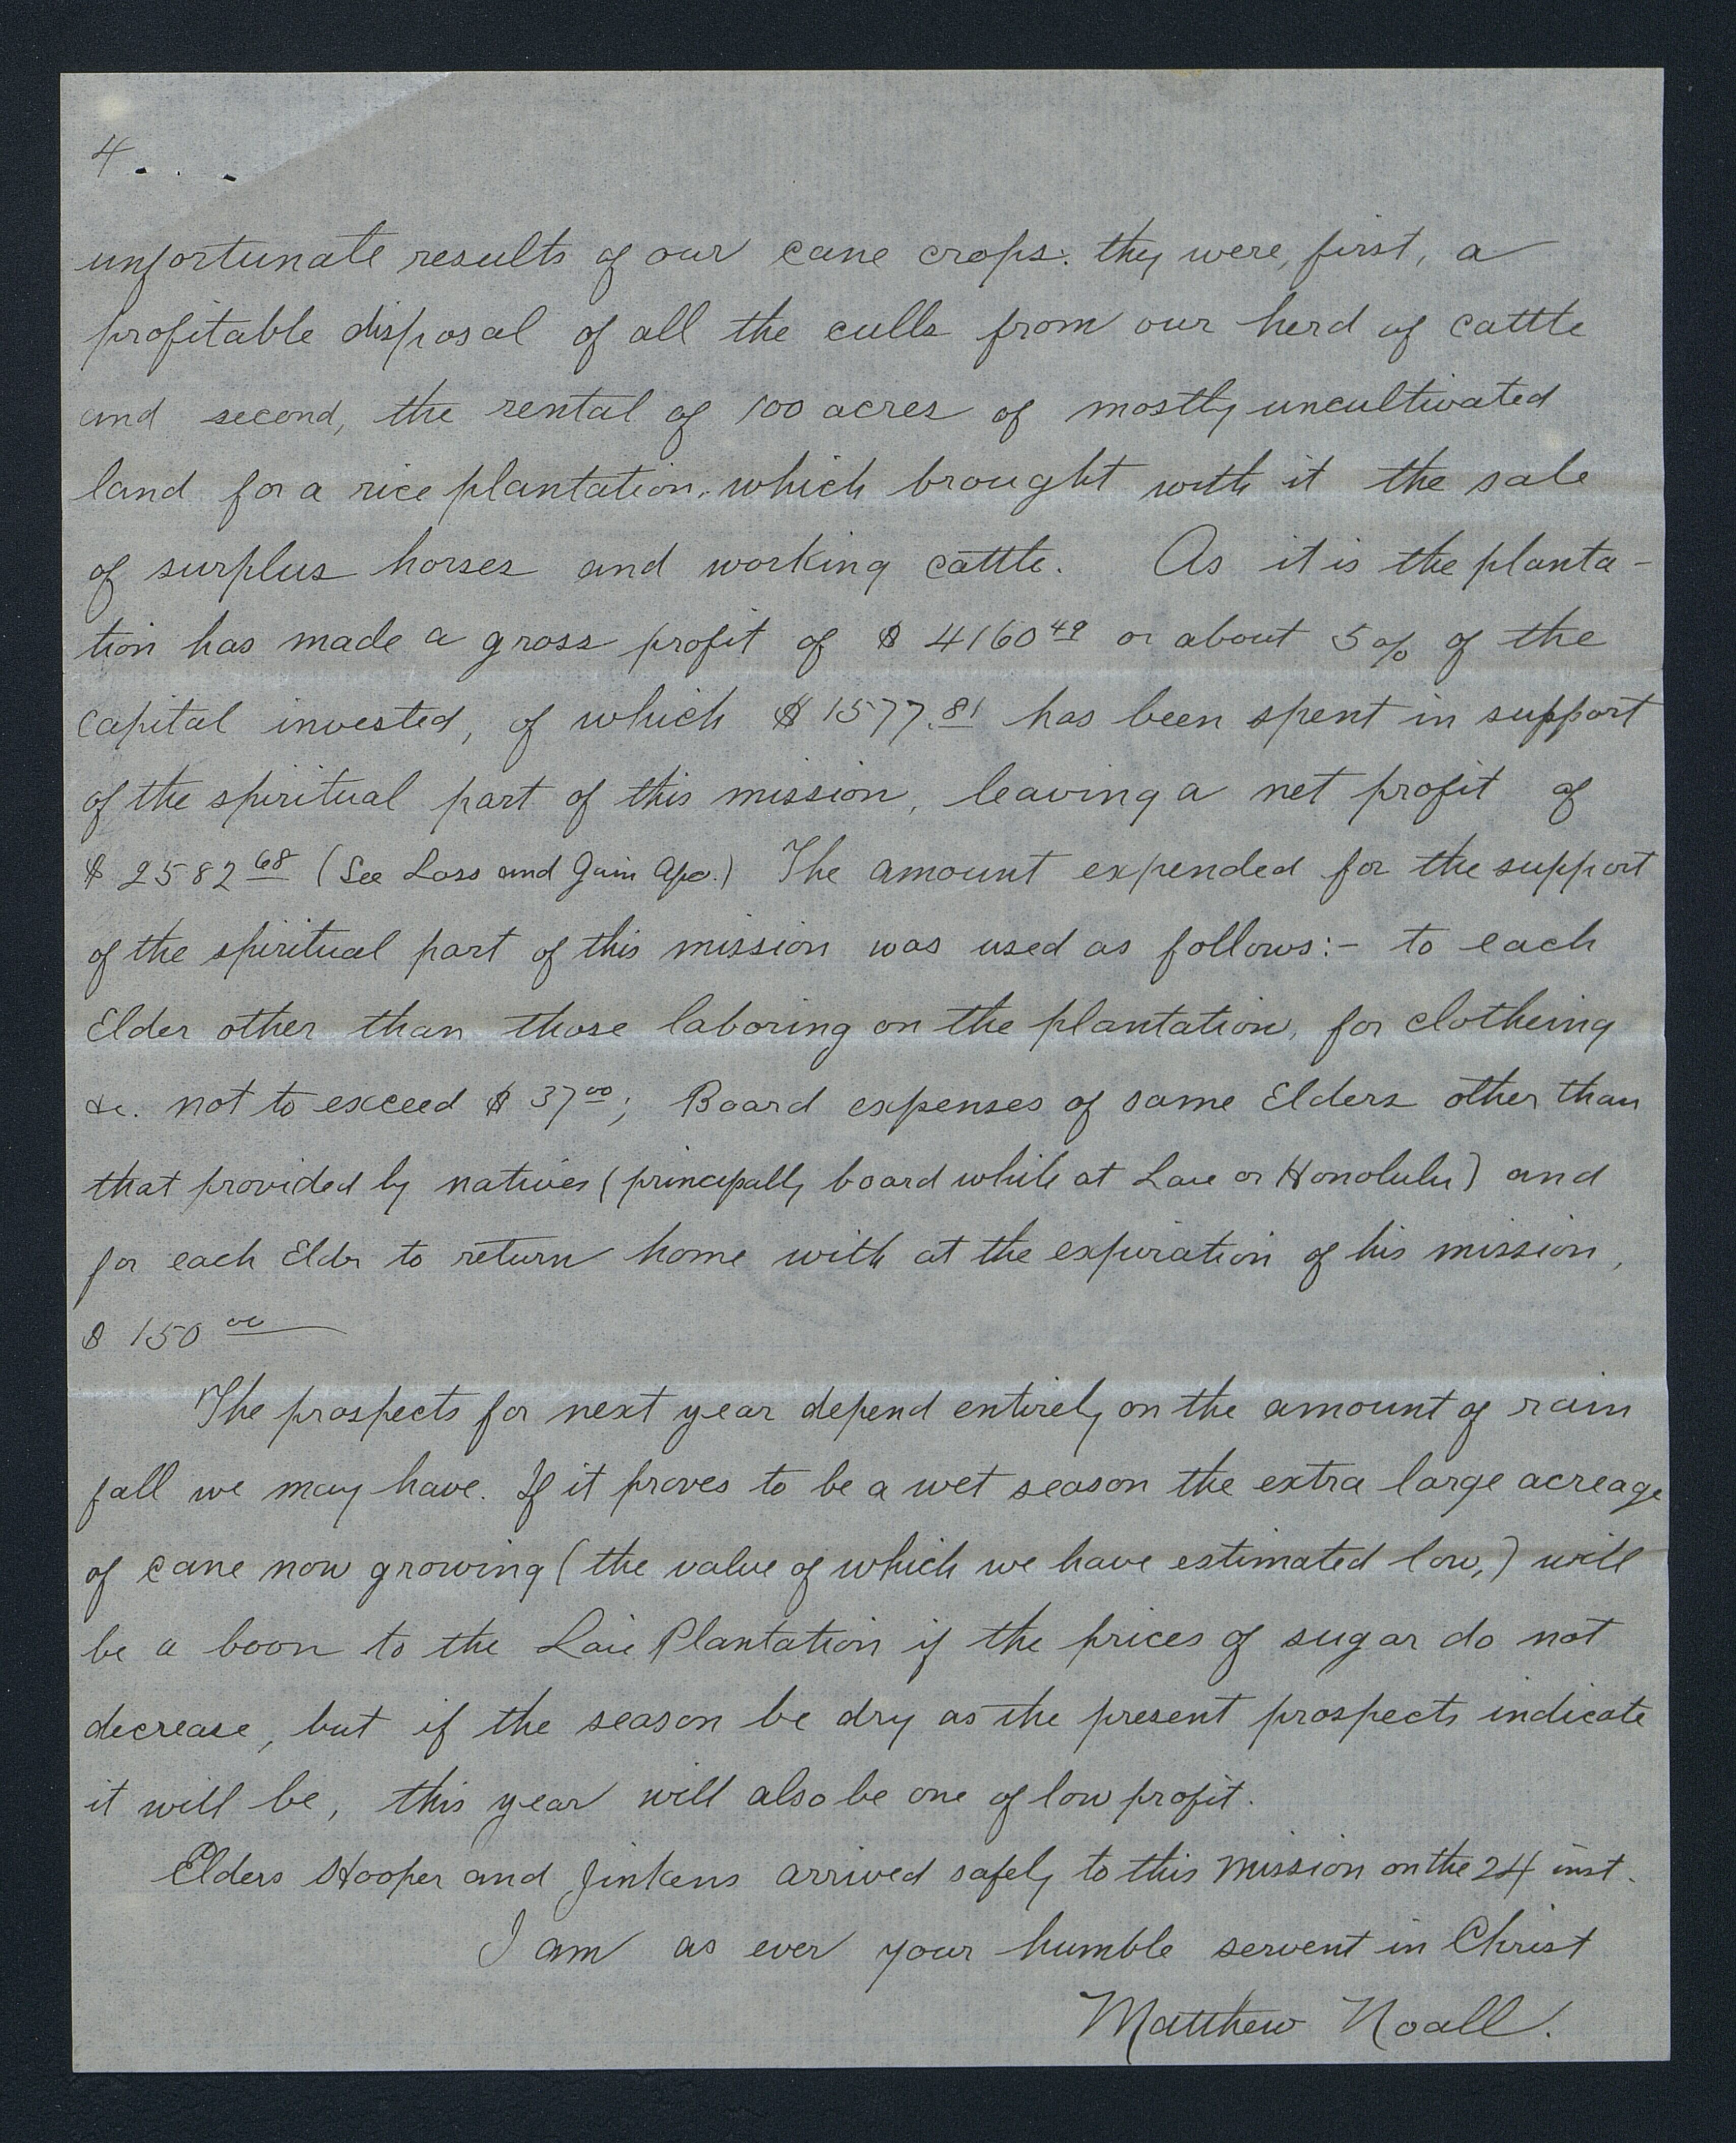 4. . . .
unfortunate results of our cane crops. they were, first, a
profitable disposal of all the culls from our herd of cattle
and second, the rental of 100 acres of mostly uncultivated
land for a rice plantation, which brought with it the sale
of surplus horses and working cattle. As it is the planta-
tion has made a gross profit of $4160 49 or about 5% of the
capital invested, of which $1577.81 has been spent in support
of the spiritual part of this mission, leaving a net profit of
$2582 68 (See Loss and Gain Apc.) The amount expended for the support
of the spiritual part of this mission was used as follows:- to each
Elder other than those laboring on the plantation, for clotheing
&c. not to exceed $37 00; Board expenses of same Elders other than
that provided by natives (principally board while at Laie or Honolulu) and
for each Elder to return home with at the expiration of his mission,
$150 00
The prospects for next year depend entirely on the amount of rain
fall we may have. If it proves to be a wet season the extra large acreage
of cane now growing (the value of which we have estimated low,) will
be a boon to the Laie Plantation if the prices of sugar do not
decrease, but if the season be dry as the present prospects indicate
it will be, this year will also be one of low profit.
Elders Hooper and Jinkens arrived safely to this mission on the 24 inst.
I am as ever your humble servent in Christ
Matthew Noall.